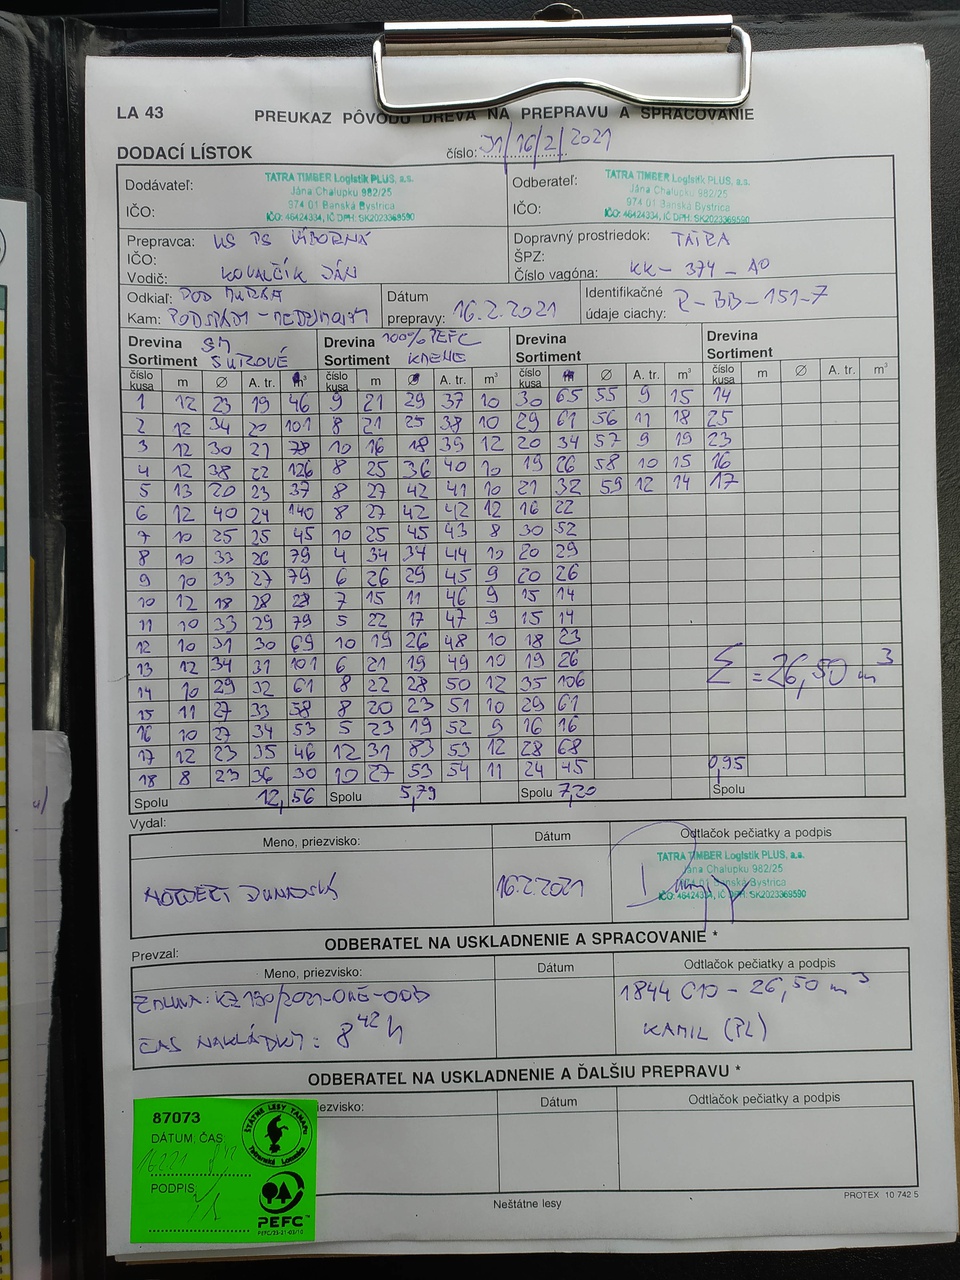 LA 43
PREUKAZ PÔVODU DREVA NA PREPRAVU A SPRACOVANIE
DODACÍ LÍSTOK
číslo: 31/16/2/2021
Dodávateľ:
TATRA TIMBER Logistik PLUS, a.s.
Jána Chalupku 982/25
974 01 Banská Bystrica
IČO:
IČO: 46424334, IČ DPH: SK2023369590
Odberateľ:
TATRA TIMBER Logistik PLUS, a.s.
Jána Chalupku 982/25
974 01 Banská Bystrica
IČO:
IČO: 46424334, IČ DPH: SK2023369590
Prepravca: US PS VÝBORNÁ
IČO:
Vodič: KOVALČÍK JÁN
Dopravný prostriedok: TATRA
ŠPZ:
Číslo vagóna: KK - 374 - AO
Odkiaľ: POD
Kam: PODSPÁDY -
Dátum
prepravy: 16.2.2021
Identifikačné
údaje ciachy: R-BB-151-7
Drevina SM
Sortiment SUROVÉ
Drevina 100% PEFC
Sortiment KMENE
Drevina
Sortiment
Drevina
Sortiment
číslo kusa m Ø A. tr. m³ číslo kusa m Ø A. tr. m³ číslo kusa m Ø A. tr. m³ číslo kusa m Ø A. tr. m³
1 12 23 19 46 9 21 29 37 10 30 65 55 9 15 14
2 12 34 20 101 8 21 25 38 10 29 61 56 11 18 25
3 12 30 21 78 10 16 18 39 12 20 34 57 9 19 23
4 12 38 22 126 8 25 36 40 10 19 26 58 10 15 16
5 13 20 23 37 8 27 42 41 10 21 32 59 12 14 17
6 12 40 24 140 8 27 42 42 12 16 22
7 10 25 25 45 10 25 45 43 8 30 52
8 10 33 26 79 4 34 34 44 10 20 29
9 10 33 27 79 6 26 29 45 9 20 26
10 12 18 28 28 7 15 11 46 9 15 14
11 10 33 29 79 5 22 17 47 9 15 14
12 10 31 30 69 10 19 26 48 10 18 23
13 12 34 31 101 6 21 19 49 10 19 26
14 10 29 32 61 8 22 28 50 12 35 106
15 11 27 33 58 8 20 23 51 10 29 61
16 10 27 34 53 5 23 19 52 9 16 16
17 12 23 35 46 12 31 83 53 12 28 68
18 8 23 36 30 10 27 53 54 11 24 45
Σ = 26,50 m³
0,95
Spolu 12,56 Spolu 5,79 Spolu 7,20 Spolu
Vydal:
Meno, priezvisko:
Dátum
Odtlačok pečiatky a podpis
16.2.2021
TATRA TIMBER Logistik PLUS, a.s.
Jána Chalupku 982/25
974 01 Banská Bystrica
IČO: 46424334, IČ DPH: SK2023369590
ODBERATEĽ NA USKLADNENIE A SPRACOVANIE *
Prevzal:
Meno, priezvisko:
Dátum
Odtlačok pečiatky a podpis
1844 C10 - 26,50 m³
ČAS NAKLÁDKY: 8⁴² h
KAMIL (PL)
ODBERATEĽ NA USKLADNENIE A ĎALŠIU PREPRAVU *
iezvisko:
Dátum
Odtlačok pečiatky a podpis
87073
DÁTUM, ČAS
PODPIS
ŠTÁTNE LESY TANAPu
Tatranská Lomnica
PEFC
Neštátne lesy
PROTEX 10 742 5